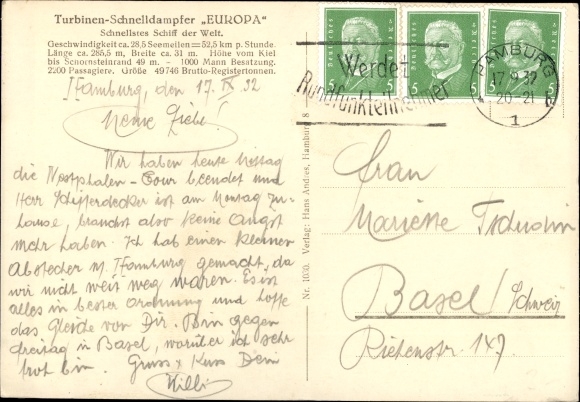 Turbinen-Schnelldampfer „EUROPA“
Schnellstes Schiff der Welt.
Geschwindigkeit ca. 28,5 Seemeilen = 52,5 km p. Stunde.
Länge ca. 285,5 m, Breite ca. 31 m. Höhe vom Kiel
bis Schornsteinrand 49 m. - 1000 Mann Besatzung.
2200 Passagiere. Größe 49746 Brutto-Registertonnen.
Hamburg, den 17. IX 32
Meine Liebe!
Wir haben heute Mittag
die Westphalen-Tour beendet und
Herr Schifferdecker ist am Montag zu-
hause, brauchst also keine Angst
mehr haben. Ich hab einen kleinen
Abstecher n. Hamburg gemacht, da
wir nicht weit weg waren. Es ist
alles in bester Ordnung und hoffe
das Gleiche von Dir. Bin gegen
Freitag in Basel, worüber ich sehr
froh bin. Gruss & Kuss Dein
Willi
Nr. 1030. Verlag: Hans Andres, Hamburg 8
Werdet
Rundfunkteilnehmer
HAMBURG
17.9.32
20-21
1
5
5 5
5 5
Frau
Mariette Tschudin
Basel/Schweiz
Riehenstr 147.